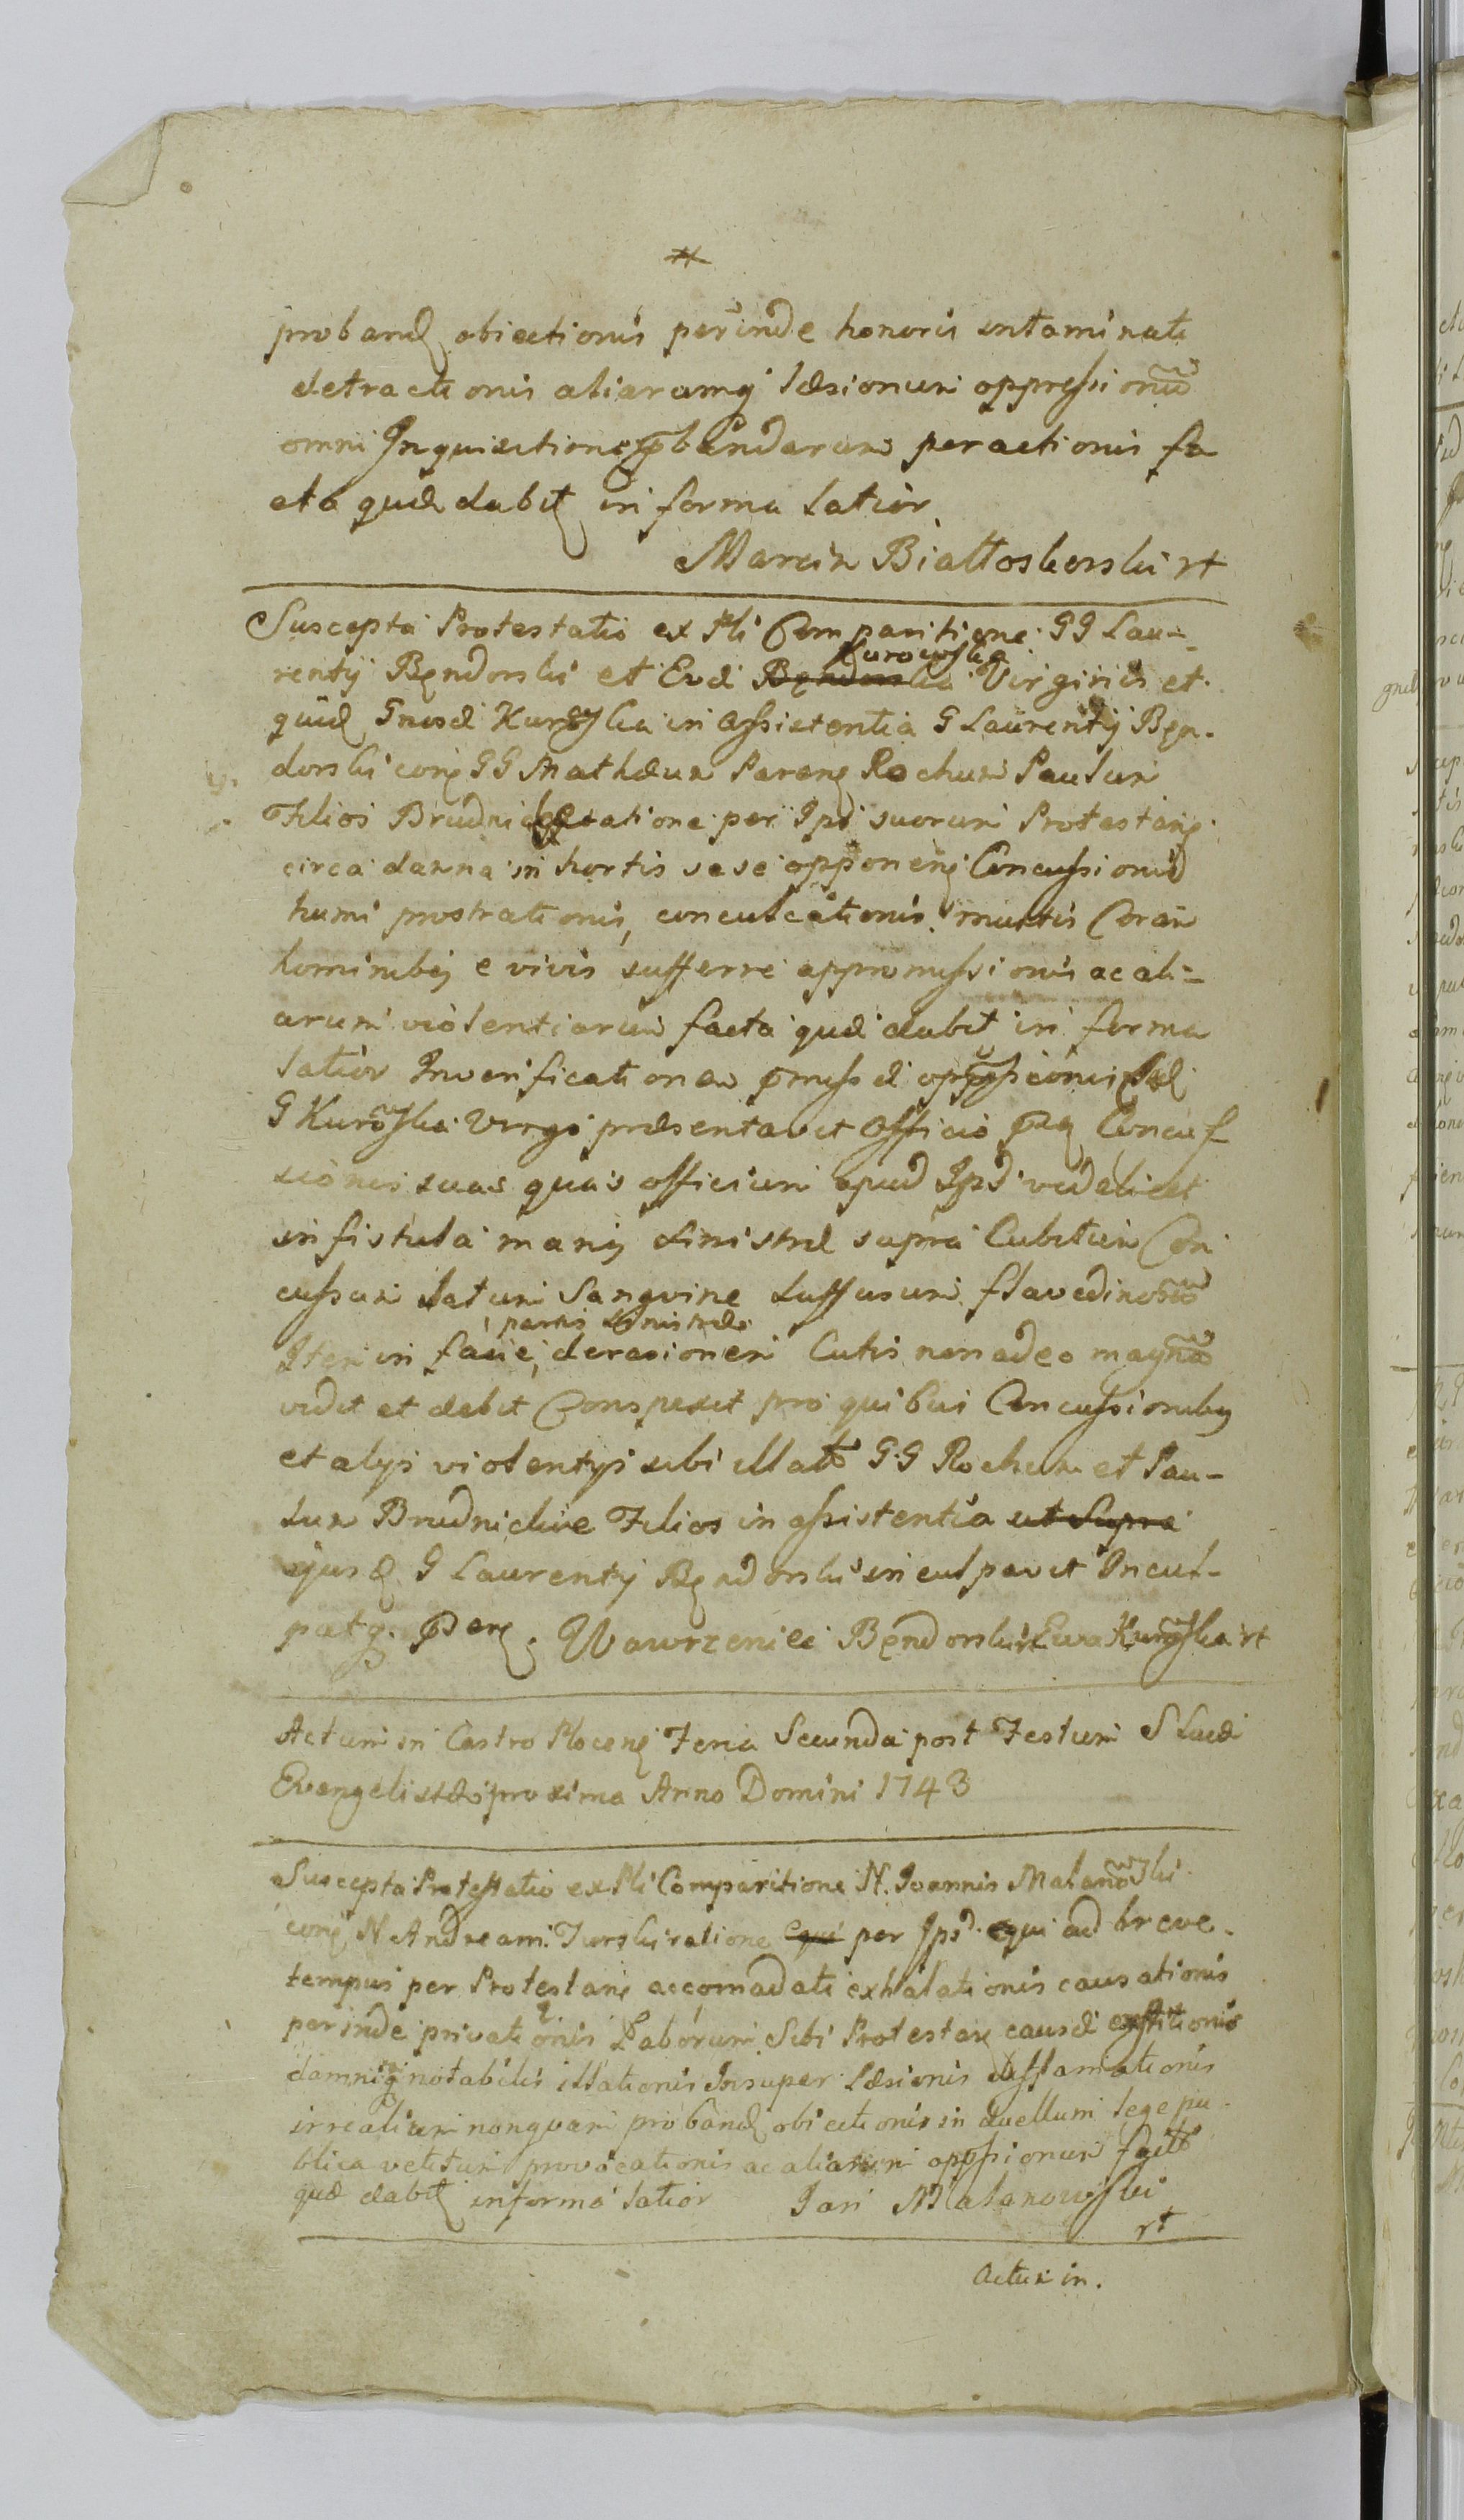 proband obiectionis perinde honoris intaminati
detractionis aliarumq læsionum oppressionum
omni Inquisitione pbandarum peractionis fa
cta quæ dabit in forma latior
Marcin Białłoskorski rt
Suscepta Protestatio ex Pli Comparitione GG Lau-
rentij Bendorski et Evæ Kurowska Virginis et
quid Gnosæ Kurowska in Assistentia G Laurentij Ben-
dorski conq GG Mathæum Parenq Rochum Paulum
Filios Brudnickie ratione per Ipsos suorum Protestanq
circa damna in hortis sese opponenq Concussionis
humi prostrationis, conculcationis multis Coram
hominibq e vivis sufferre appromissionis ac ali-
arum violentiarum facta quæ dabit in forma
latior Inverificationem pmissæ oppssionis
G Kurowska Virgo præsentavit Officio Concus
siones suas quas officium apud Ipsd videlicet
in fistula manq sinistræ supra Cubitum Con
cussum latum Sangvine suffusum flavedinosum
partis sinistræ
Item in facie, derasionem Cutis non adeo magnam
vidit et debit Conspexit pro quibus Concussionibq
et alijs violentijs sibi illatis G.G Rochum et Pau-
lum Brudnickie Filios in assistentia ut Supra
ejusd G Laurentij Bendorski inculpavit Incul-
patq. Wawrzeniec Bendorski rt Ewa Kurowska rt
Actum in Castro Plocenq Feria Secunda post Festum S Lucæ
Evangelistæ proxima Anno Domini 1743
Suscepta Protestatio ex Pli Comparitione N. Joannis Malanowski
conq N Andream Turski ratione equi per Ipsd. equi ad breve
tempus per Protestanq accomadati exhalationis causationis
perinde privationis Laborum Sibi Protestan causæ
damniq notabilis illationis Insuper læsionis diffamationis
irrealium nonquam proband obiectionis in duellum lege pu
blica vetitum provocationis ac aliarum oppssionum
quæ dabit in forma latior Jan Malanowski
rt
Actum in.